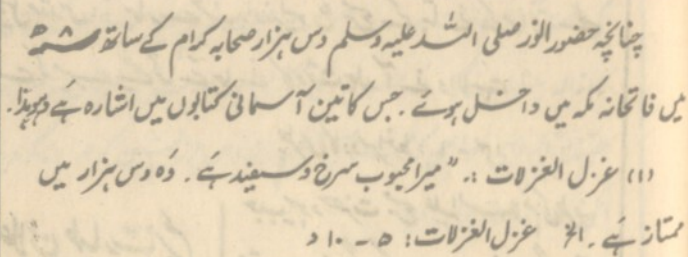 چنانچہ حضور انور صلی اللہ علیہ وسلم دس ہزار صحابہ کرام کے ساتھ ۸ھ
میں فاتحانہ مکہ میں داخل ہوئے ۔ جس کا تین آسمانی کتابوں میں اشارہ ہے وہو ہذا ۔
(۱) غزل الغزلات :۔ "میرا محبوب سرخ و سفید ہے ۔ وہ دس ہزار میں
ممتاز ہے ۔ الخ غزل الغزلات : ۵ ۔ ۱۰